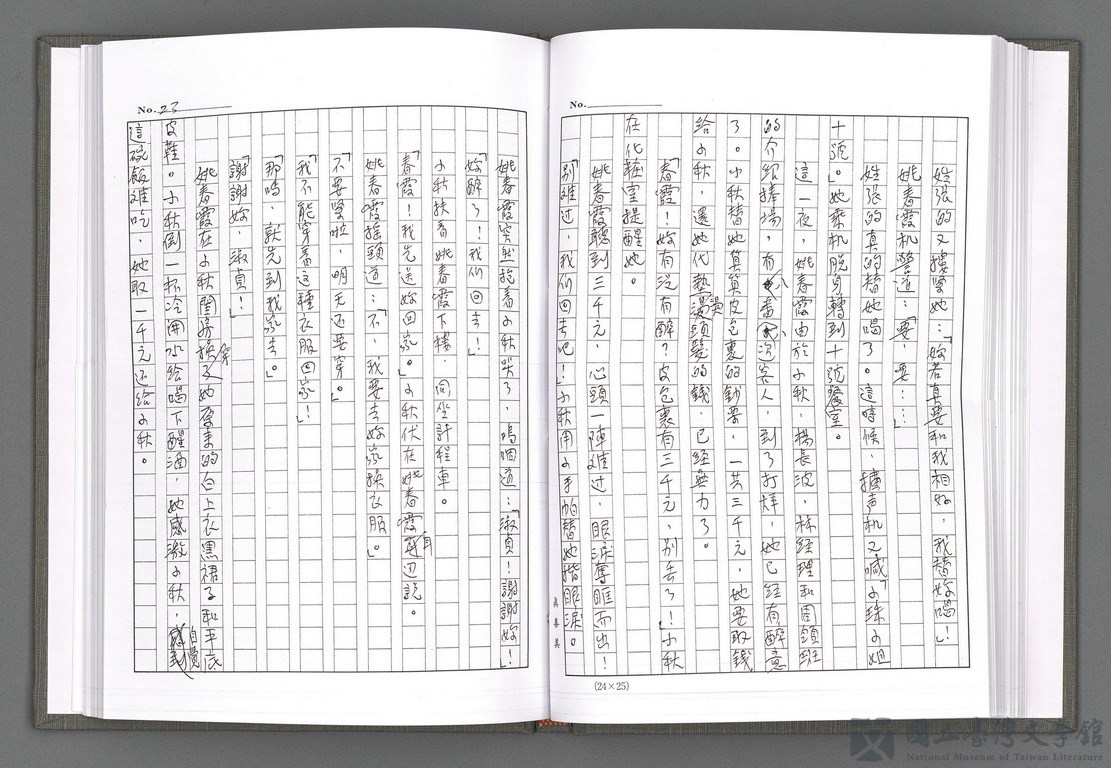 No.
姓張的又摟緊她：「妳若真要和我相好，我替妳喝」！
姚春霞机警道：「要，要……」
姓張的真的替她喝了。這時候，擴声机又喊「小珠小姐
十號」。她乘机脫身轉到十號餐室。
這一夜，姚春霞由於小秋、楊長波、林經理和周領班
的介紹捧場，有八番客人，到了打烊，她已經有醉意
了。小秋替她算算皮包裹的鈔票，一共三千元，她要取錢
給小秋，還她代墊燙頭髮的錢，已經無力了。
「春霞！妳有沒有醉？皮包裹有三千元，別丟了！」小秋
在化粧室提醒她。
姚春霞聽到三千元，心頭一陣难过，眼淚奪眶而出！
「別难过，我们回去吧！」小秋用小手帕替她揩眼淚。
(24×25)
No. 23
姚春霞突然抱着小秋哭了，嗚咽道：「淑貞！謝謝妳」！
「妳醉了！我们回去！」
小秋扶着姚春霞下樓，同坐計程車。
「春霞！我先送妳回家」。小秋伏在姚春霞耳边說。
姚春霞搖頭道：「不，我要去妳家換衣服」。
「不要緊啦，明天还要穿。」
「我不能穿着這種衣服回家」！
「那嗎，就先到我家去」。
「謝謝妳，淑貞」！
姚春霞在小秋閨房換穿她原來的白上衣黑裙子和平底
皮鞋。小秋倒一杯冷開水給喝下醒酒，她感激小秋，自覺
這碗飯难吃，她取一千元还給小秋。
國立臺灣文學館
National Museum of Taiwan Literature